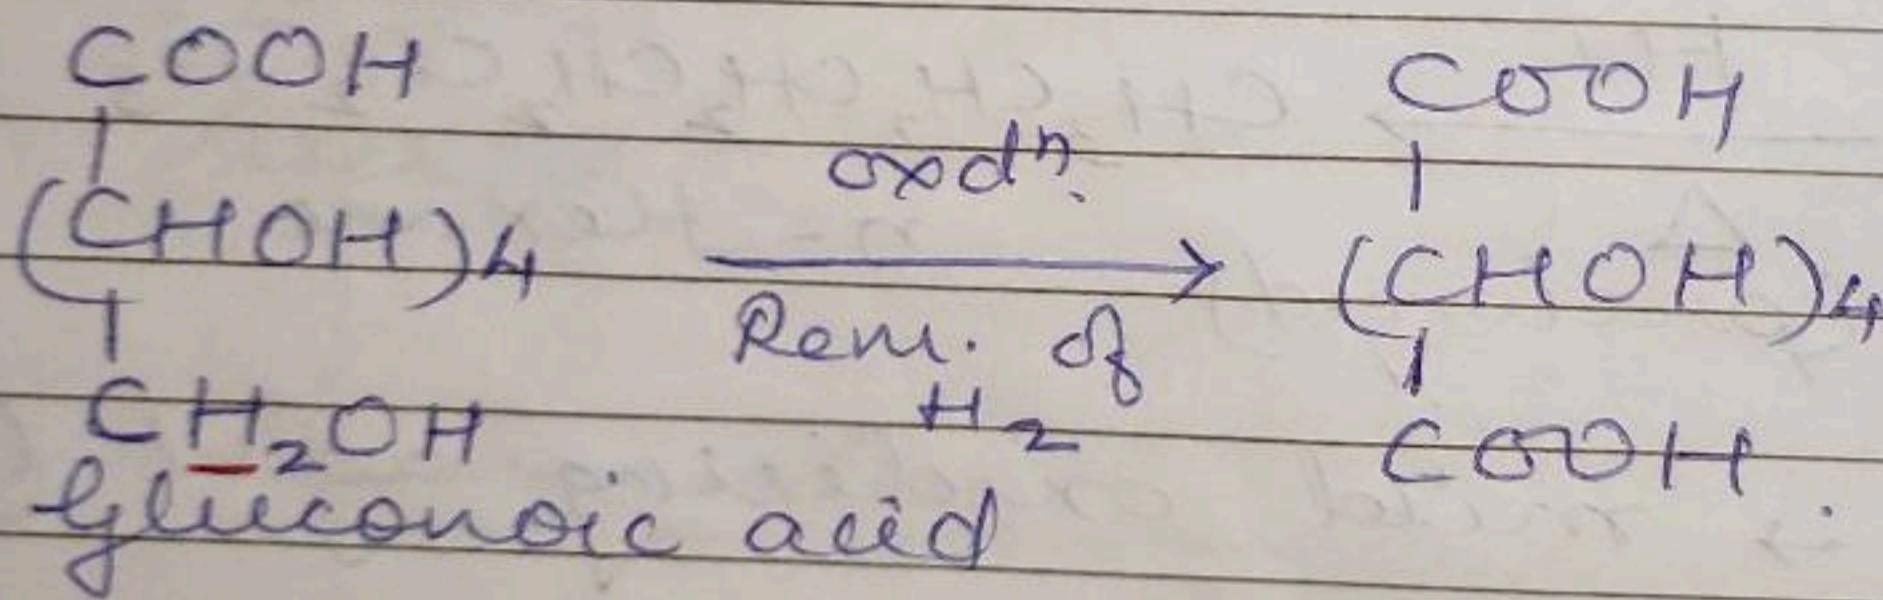 COOH
|
(CHOH)4
|
CH2OH
Gluconoic acid
oxdn.
Rem. of
H2
COOH
|
(CHOH)4
|
COOH